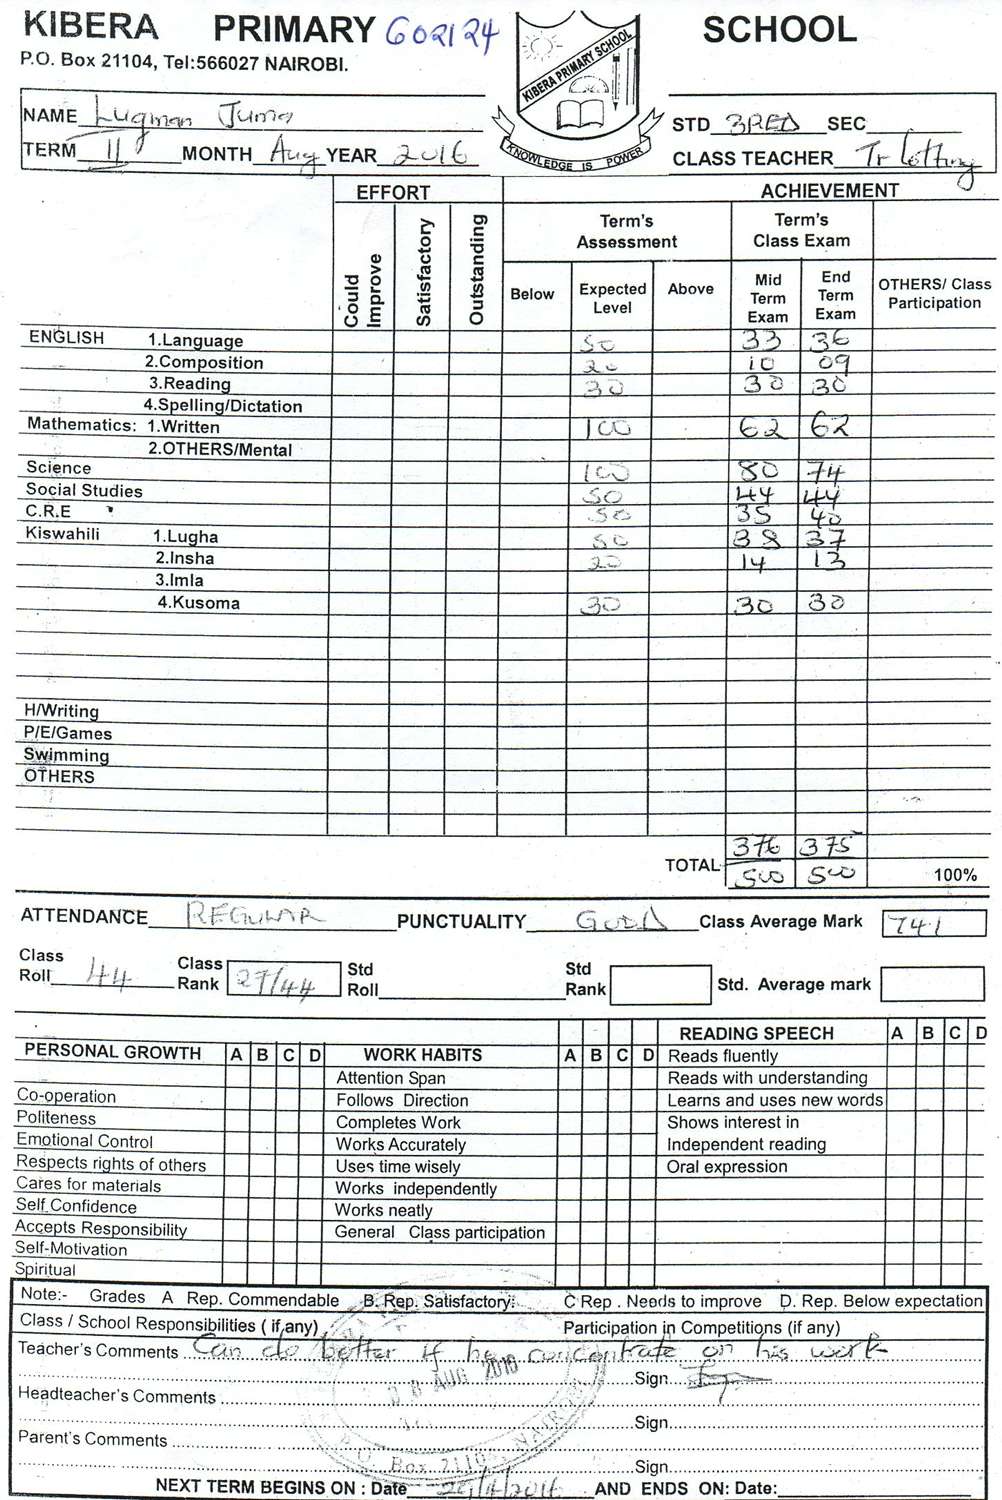 KIBERA PRIMARY 602124 SCHOOL
P.O. Box 21104, Tel:566027 NAIROBI.
KIBERA PRIMARY SCHOOL
KNOWLEDGE IS POWER
NAME Luqman Juma
STD 3RED SEC
TERM II MONTH Aug YEAR 2016
CLASS TEACHER Tr
EFFORT ACHIEVEMENT
Could Improve Satisfactory Outstanding
Term's Assessment Term's Class Exam
Below Expected Level Above Mid Term Exam End Term Exam OTHERS/ Class Participation
ENGLISH 1.Language 50 33 36
2.Composition 20 10 09
3.Reading 30 30 30
4.Spelling/Dictation
Mathematics: 1.Written 100 62 62
2.OTHERS/Mental
Science 100 80 74
Social Studies 50 44 44
C.R.E 50 35 40
Kiswahili 1.Lugha 50 38 37
2.Insha 20 14 13
3.Imla
4.Kusoma 30 30 30
H/Writing
P/E/Games
Swimming
OTHERS
376 375
TOTAL 500 500 100%
ATTENDANCE REGULAR PUNCTUALITY GOOD Class Average Mark 741
Class Roll 44 Class Rank 27/44 Std Roll Std Rank Std. Average mark
READING SPEECH A B C D
PERSONAL GROWTH A B C D WORK HABITS A B C D Reads fluently
Attention Span Reads with understanding
Co-operation Follows Direction Learns and uses new words
Politeness Completes Work Shows interest in
Emotional Control Works Accurately Independent reading
Respects rights of others Uses time wisely Oral expression
Cares for materials Works independently
Self Confidence Works neatly
Accepts Responsibility General Class participation
Self-Motivation
Spiritual
Note:- Grades A Rep. Commendable B. Rep. Satisfactory: C Rep . Needs to improve D. Rep. Below expectation
Class / School Responsibilities ( if,any) Participation in Competitions (if any)
Teacher's Comments Can do better if he concentrate on his work
AUG 2016
Sign
Headteacher's Comments
Sign
Parent's Comments
Box 2110
Sign
NEXT TERM BEGINS ON : Date AND ENDS ON: Date: